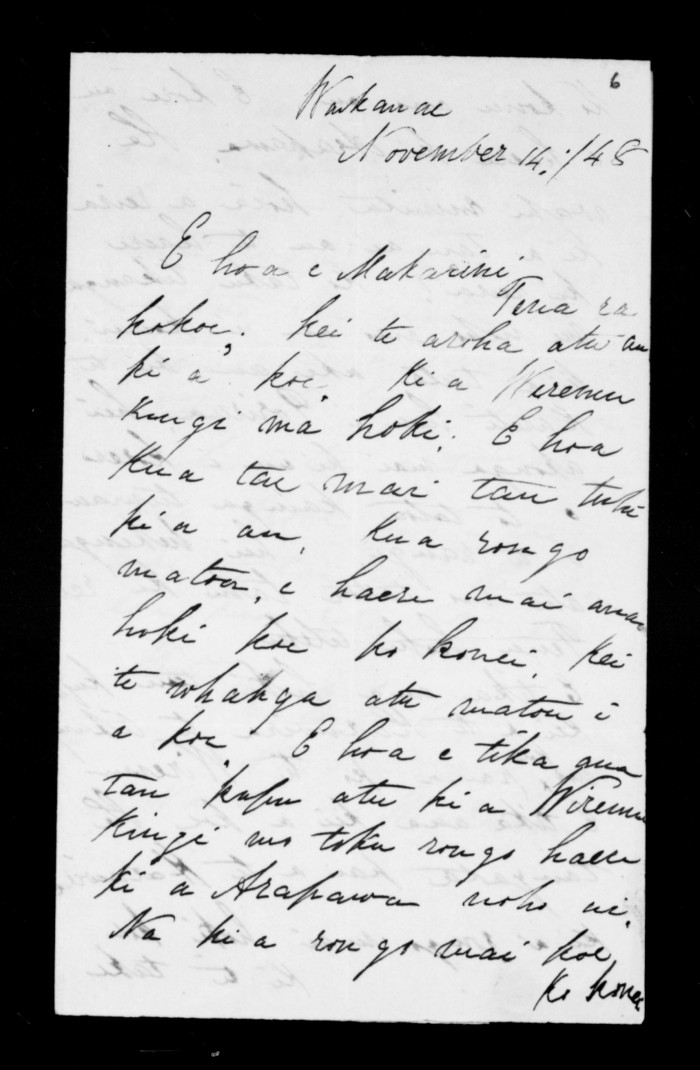 6
Waikanae
November 14:/48
E hoa e Makarini
Tena ra
kokoe. Kei te aroha atu au
ki a koe Ki a Wiremu
Kingi ma hoki. E hoa
Kua tae mai tau tuhi
ki a au, Kua rongo
matou, e haere mai ana
hoki koe ko konei, Kei
te whahga atu matou i
a koe E hoa e tika ana
tau kupu atu ki a Wiremu
Kingi mo toku rongo haere
ki a Arapawa noho ai.
Na ki a rongo mai koe,
Ko konei